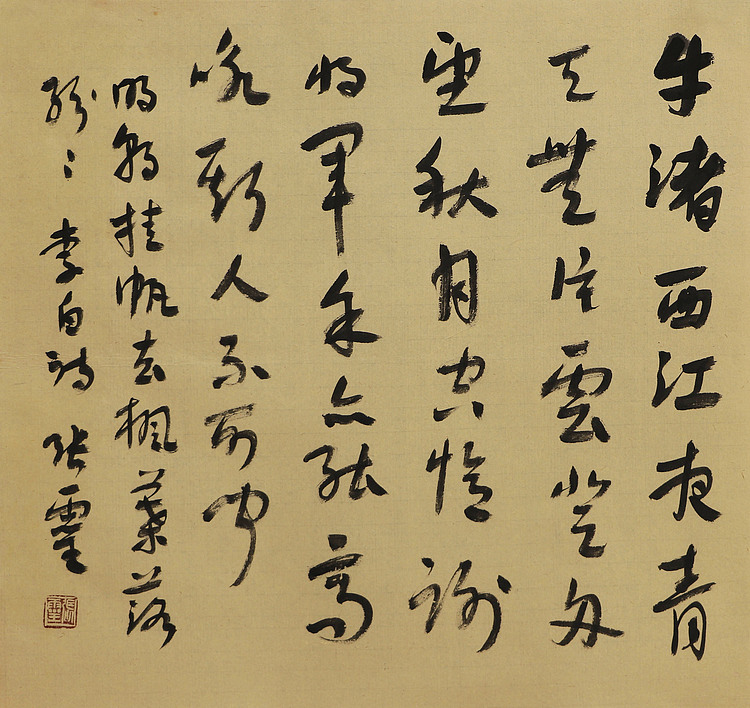 牛渚西江夜青
天無片雲登舟
望秋月空憶謝
將軍余亦能高
咏斯人不可聞
明朝挂帆去楓葉落
紛〻李白詩 張